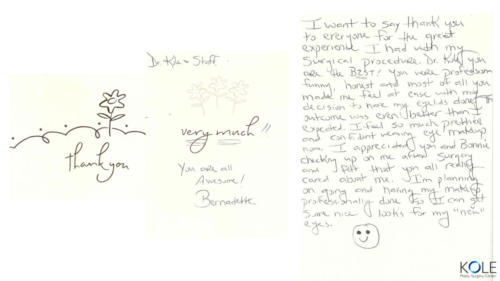 Thank you
Dr. Kole & Staff
very much
You are all
Awesome!
Bernadette
I want to say thank you
to everyone for the great
experience I had with my
Surgical procedure. Dr. Kole, you
are the BEST! You were profession
funny, honest and most of all you
made me feel at ease with my
decision to have my eyelids done
outcome was even better than I
expected. I feel so much prettier
and confident wearing eye makeup
now. I appreciated you and Bonnie
checking up on me after surgery
and felt that you all really
cared about me. I'm planning
on going and having my makeup
professionally done so I can get
some nice looks for my "new"
eyes.
KOLE
Plastic Surgery Center